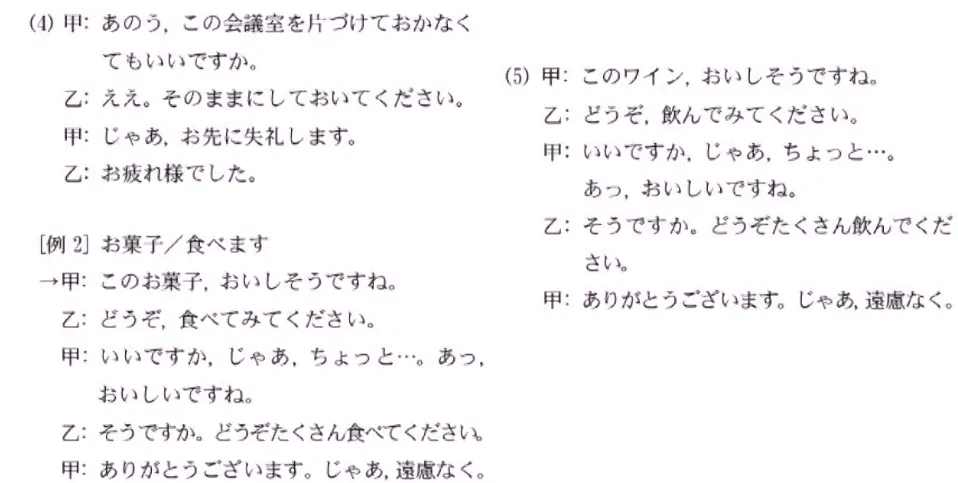 (4) 甲: あのう, この会議室を片づけておかなく
てもいいですか。
乙: ええ。そのままにしておいてください。
甲: じゃあ, お先に失礼します。
乙: お疲れ様でした。
[例2] お菓子／食べます
→甲: このお菓子, おいしそうですね。
乙: どうぞ, 食べてみてください。
甲: いいですか, じゃあ, ちょっと…。あっ,
おいしいですね。
乙: そうですか。どうぞたくさん食べてください。
甲: ありがとうございます。じゃあ, 遠慮なく。
(5) 甲: このワイン, おいしそうですね。
乙: どうぞ, 飲んでみてください。
甲: いいですか, じゃあ, ちょっと…。
あっ, おいしいですね。
乙: そうですか。どうぞたくさん飲んでくだ
さい。
甲: ありがとうございます。じゃあ, 遠慮なく。